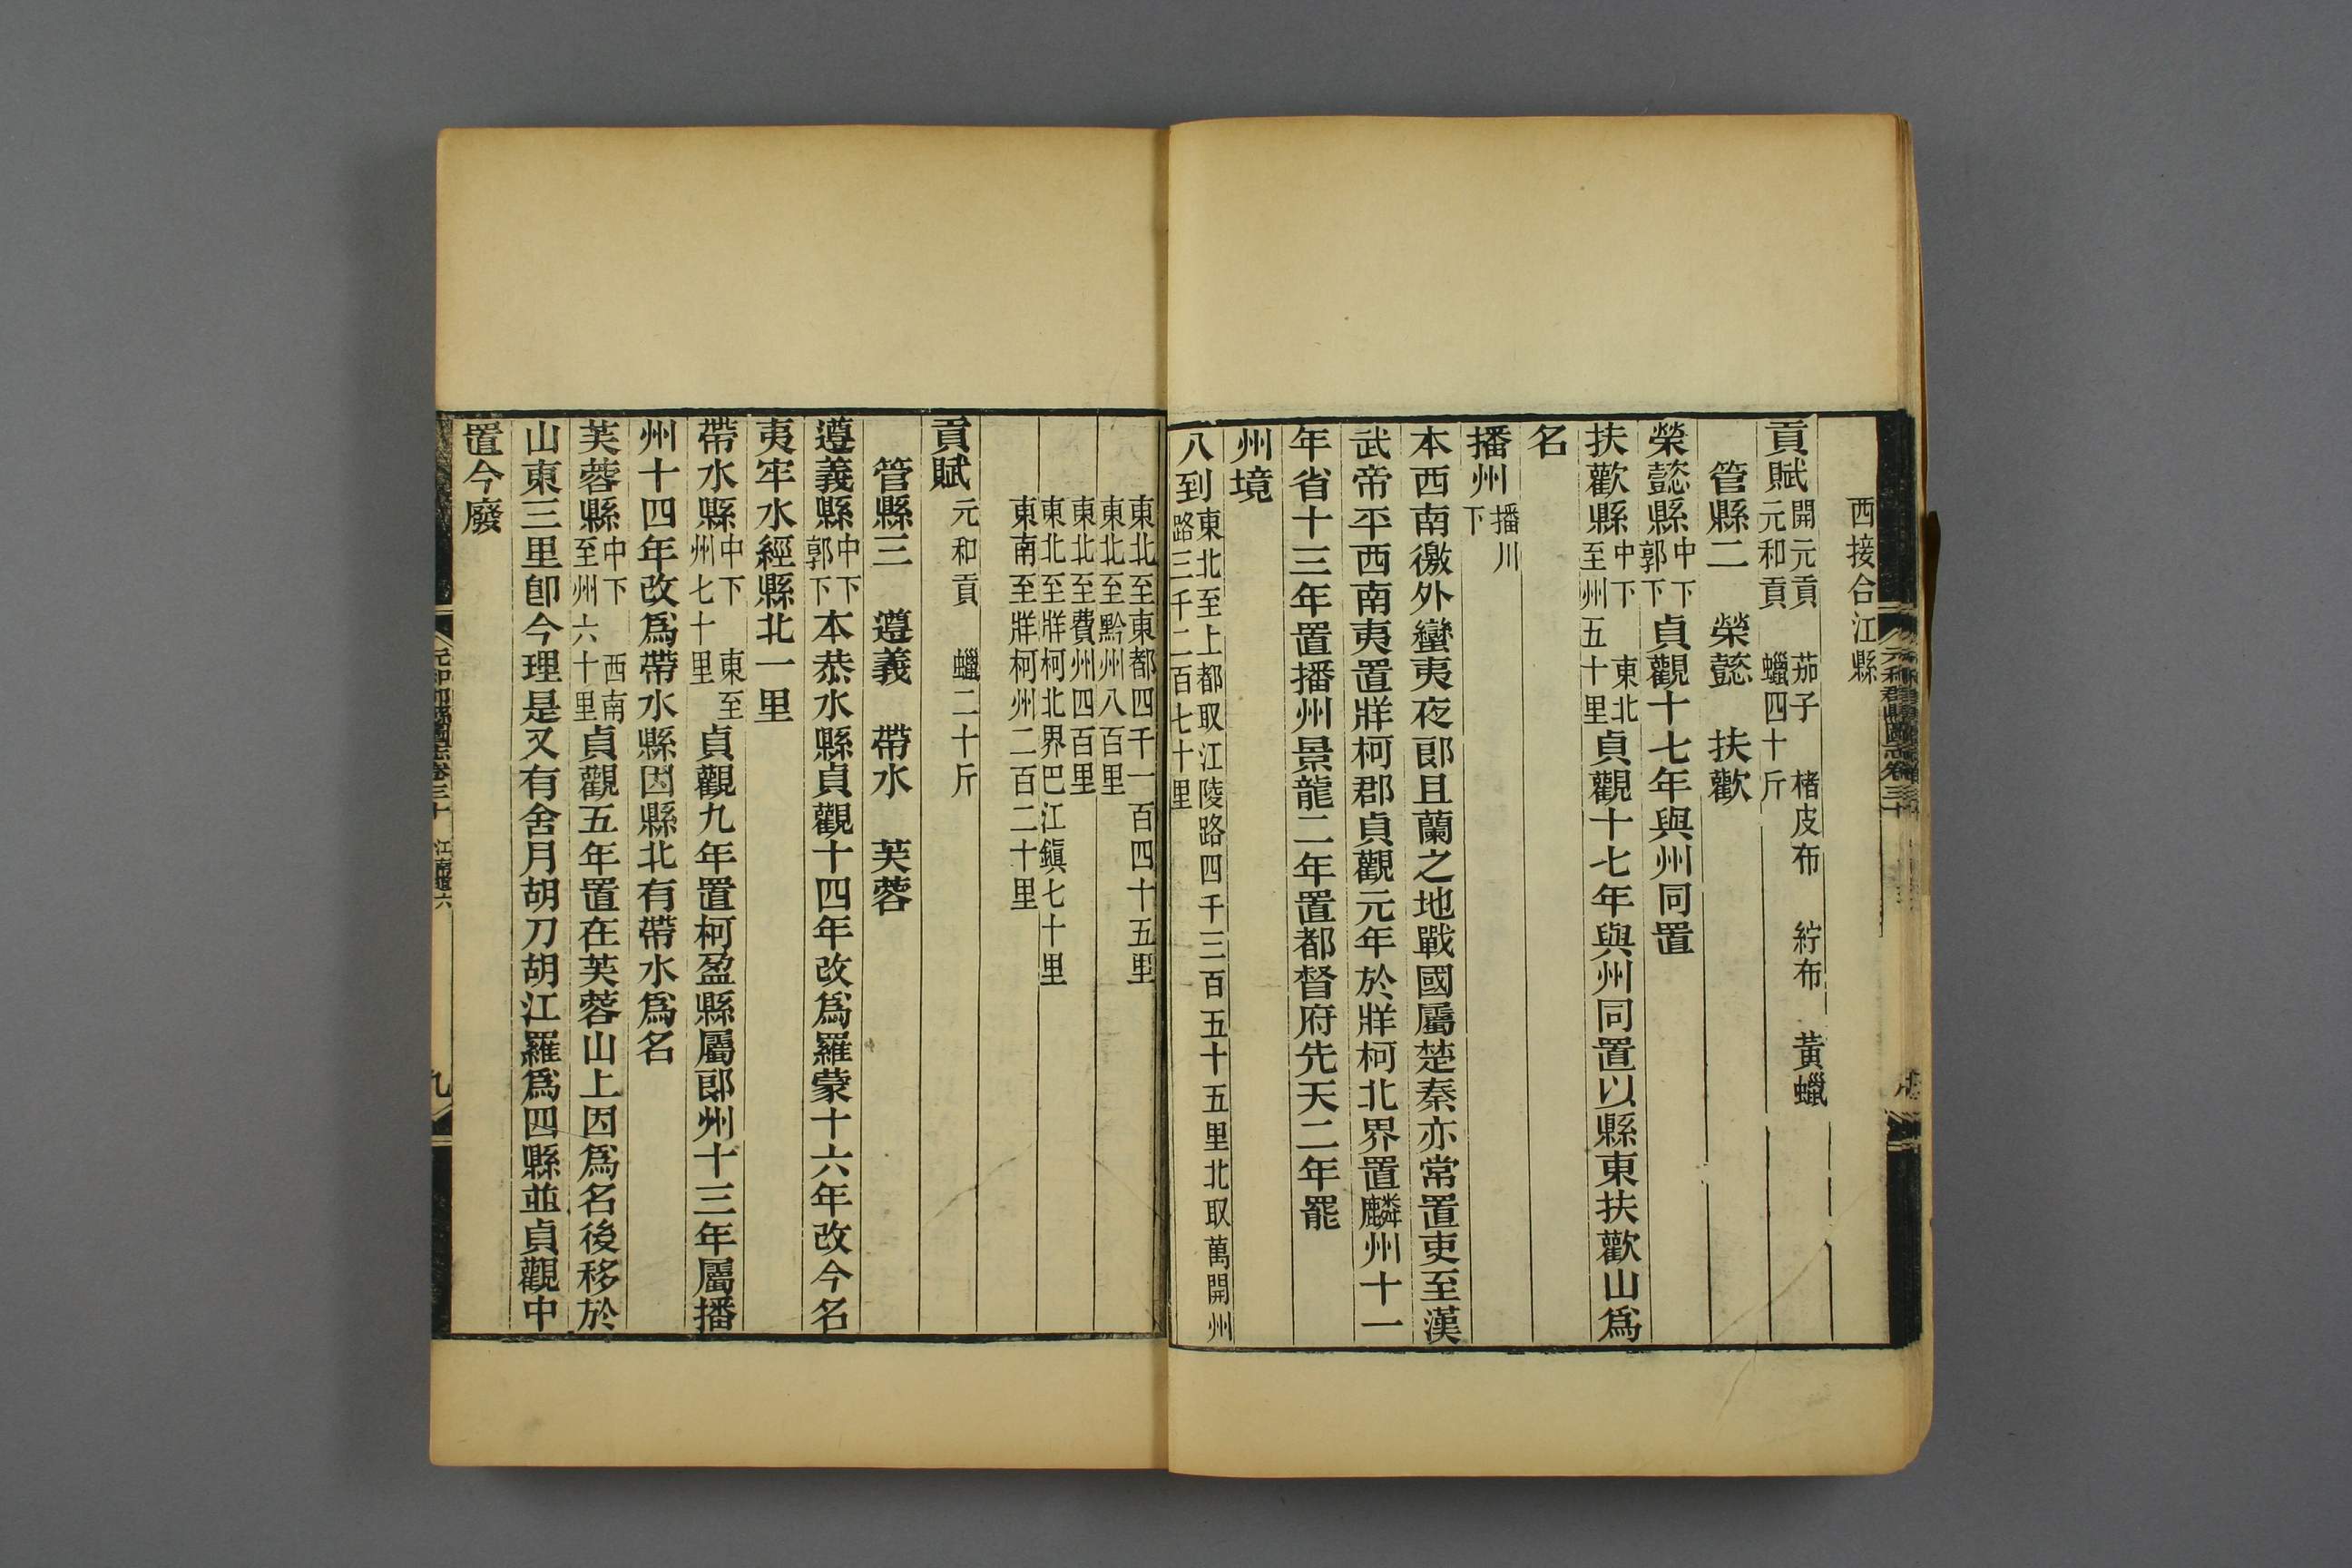 西接合江縣
貢賦開元貢　茄子　楮皮布　紵布　黃蠟
元和貢　蠟四十斤
管縣二　榮懿　扶歡
榮懿縣中下
郭下貞觀十七年與州同置
扶歡縣中下　東北
至州五十里貞觀十七年與州同置以縣東扶歡山爲
名
播州播川
下
本西南徼外蠻夷夜郎且蘭之地戰國屬楚秦亦常置吏至漢
武帝平西南夷置牂柯郡貞觀元年於牂柯北界置麟州十一
年省十三年置播州景龍二年置都督府先天二年罷
州境
八到東北至上都取江陵路四千三百五十五里北取萬開州
路三千二百七十里
東北至東都四千一百四十五里
東北至黔州八百里
東北至費州四百里
東北至牂柯北界巴江鎭七十里
東南至牂柯州二百二十里
貢賦元和貢　蠟二十斤
管縣三　遵義　帶水　芙蓉
遵義縣中下
郭下本恭水縣貞觀十四年改爲羅蒙十六年改今名
夷牢水經縣北一里
帶水縣中下　東至
州七十里貞觀九年置柯盈縣屬郎州十三年屬播
州十四年改爲帶水縣因縣北有帶水爲名
芙蓉縣中下　西南
至州六十里貞觀五年置在芙蓉山上因爲名後移於
山東三里卽今理是又有舍月胡刀胡江羅爲四縣並貞觀中
置今廢
元和郡縣圖志卷三十　江南道六
九